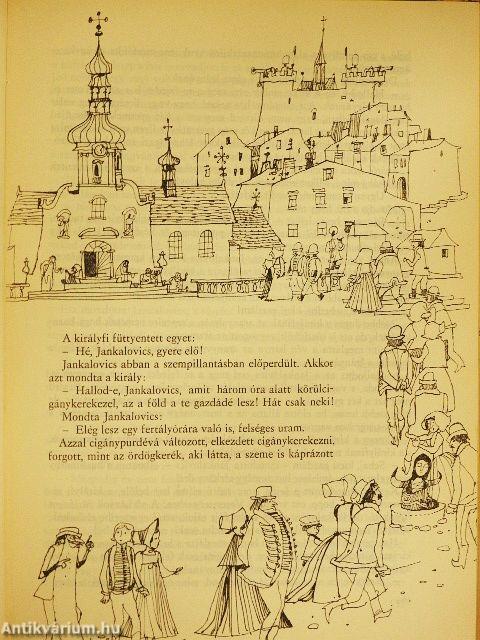 A királyfi füttyentett egyet:
– Hé, Jankalovics, gyere elő!
Jankalovics abban a szempillantásban előperdült. Akkor
azt mondta a király:
– Hallod-e, Jankalovics, amit három óra alatt körülci-
gánykerekezel, az a föld a te gazdádé lesz! Hát csak neki!
Mondta Jankalovics:
– Elég lesz egy fertályórára való is, felséges uram.
Azzal cigánypurdévá változott, elkezdett cigánykerekezni,
forgott, mint az ördögkerék, aki látta, a szeme is káprázott
Antikvárium.hu